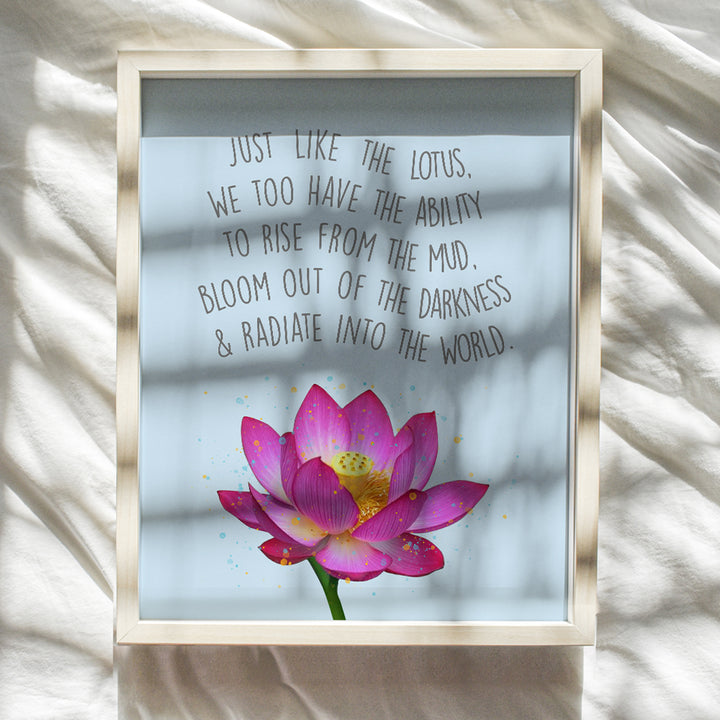 JUST LIKE THE LOTUS,
WE TOO HAVE THE ABILITY
TO RISE FROM THE MUD,
BLOOM OUT OF THE DARKNESS
& RADIATE INTO THE WORLD.